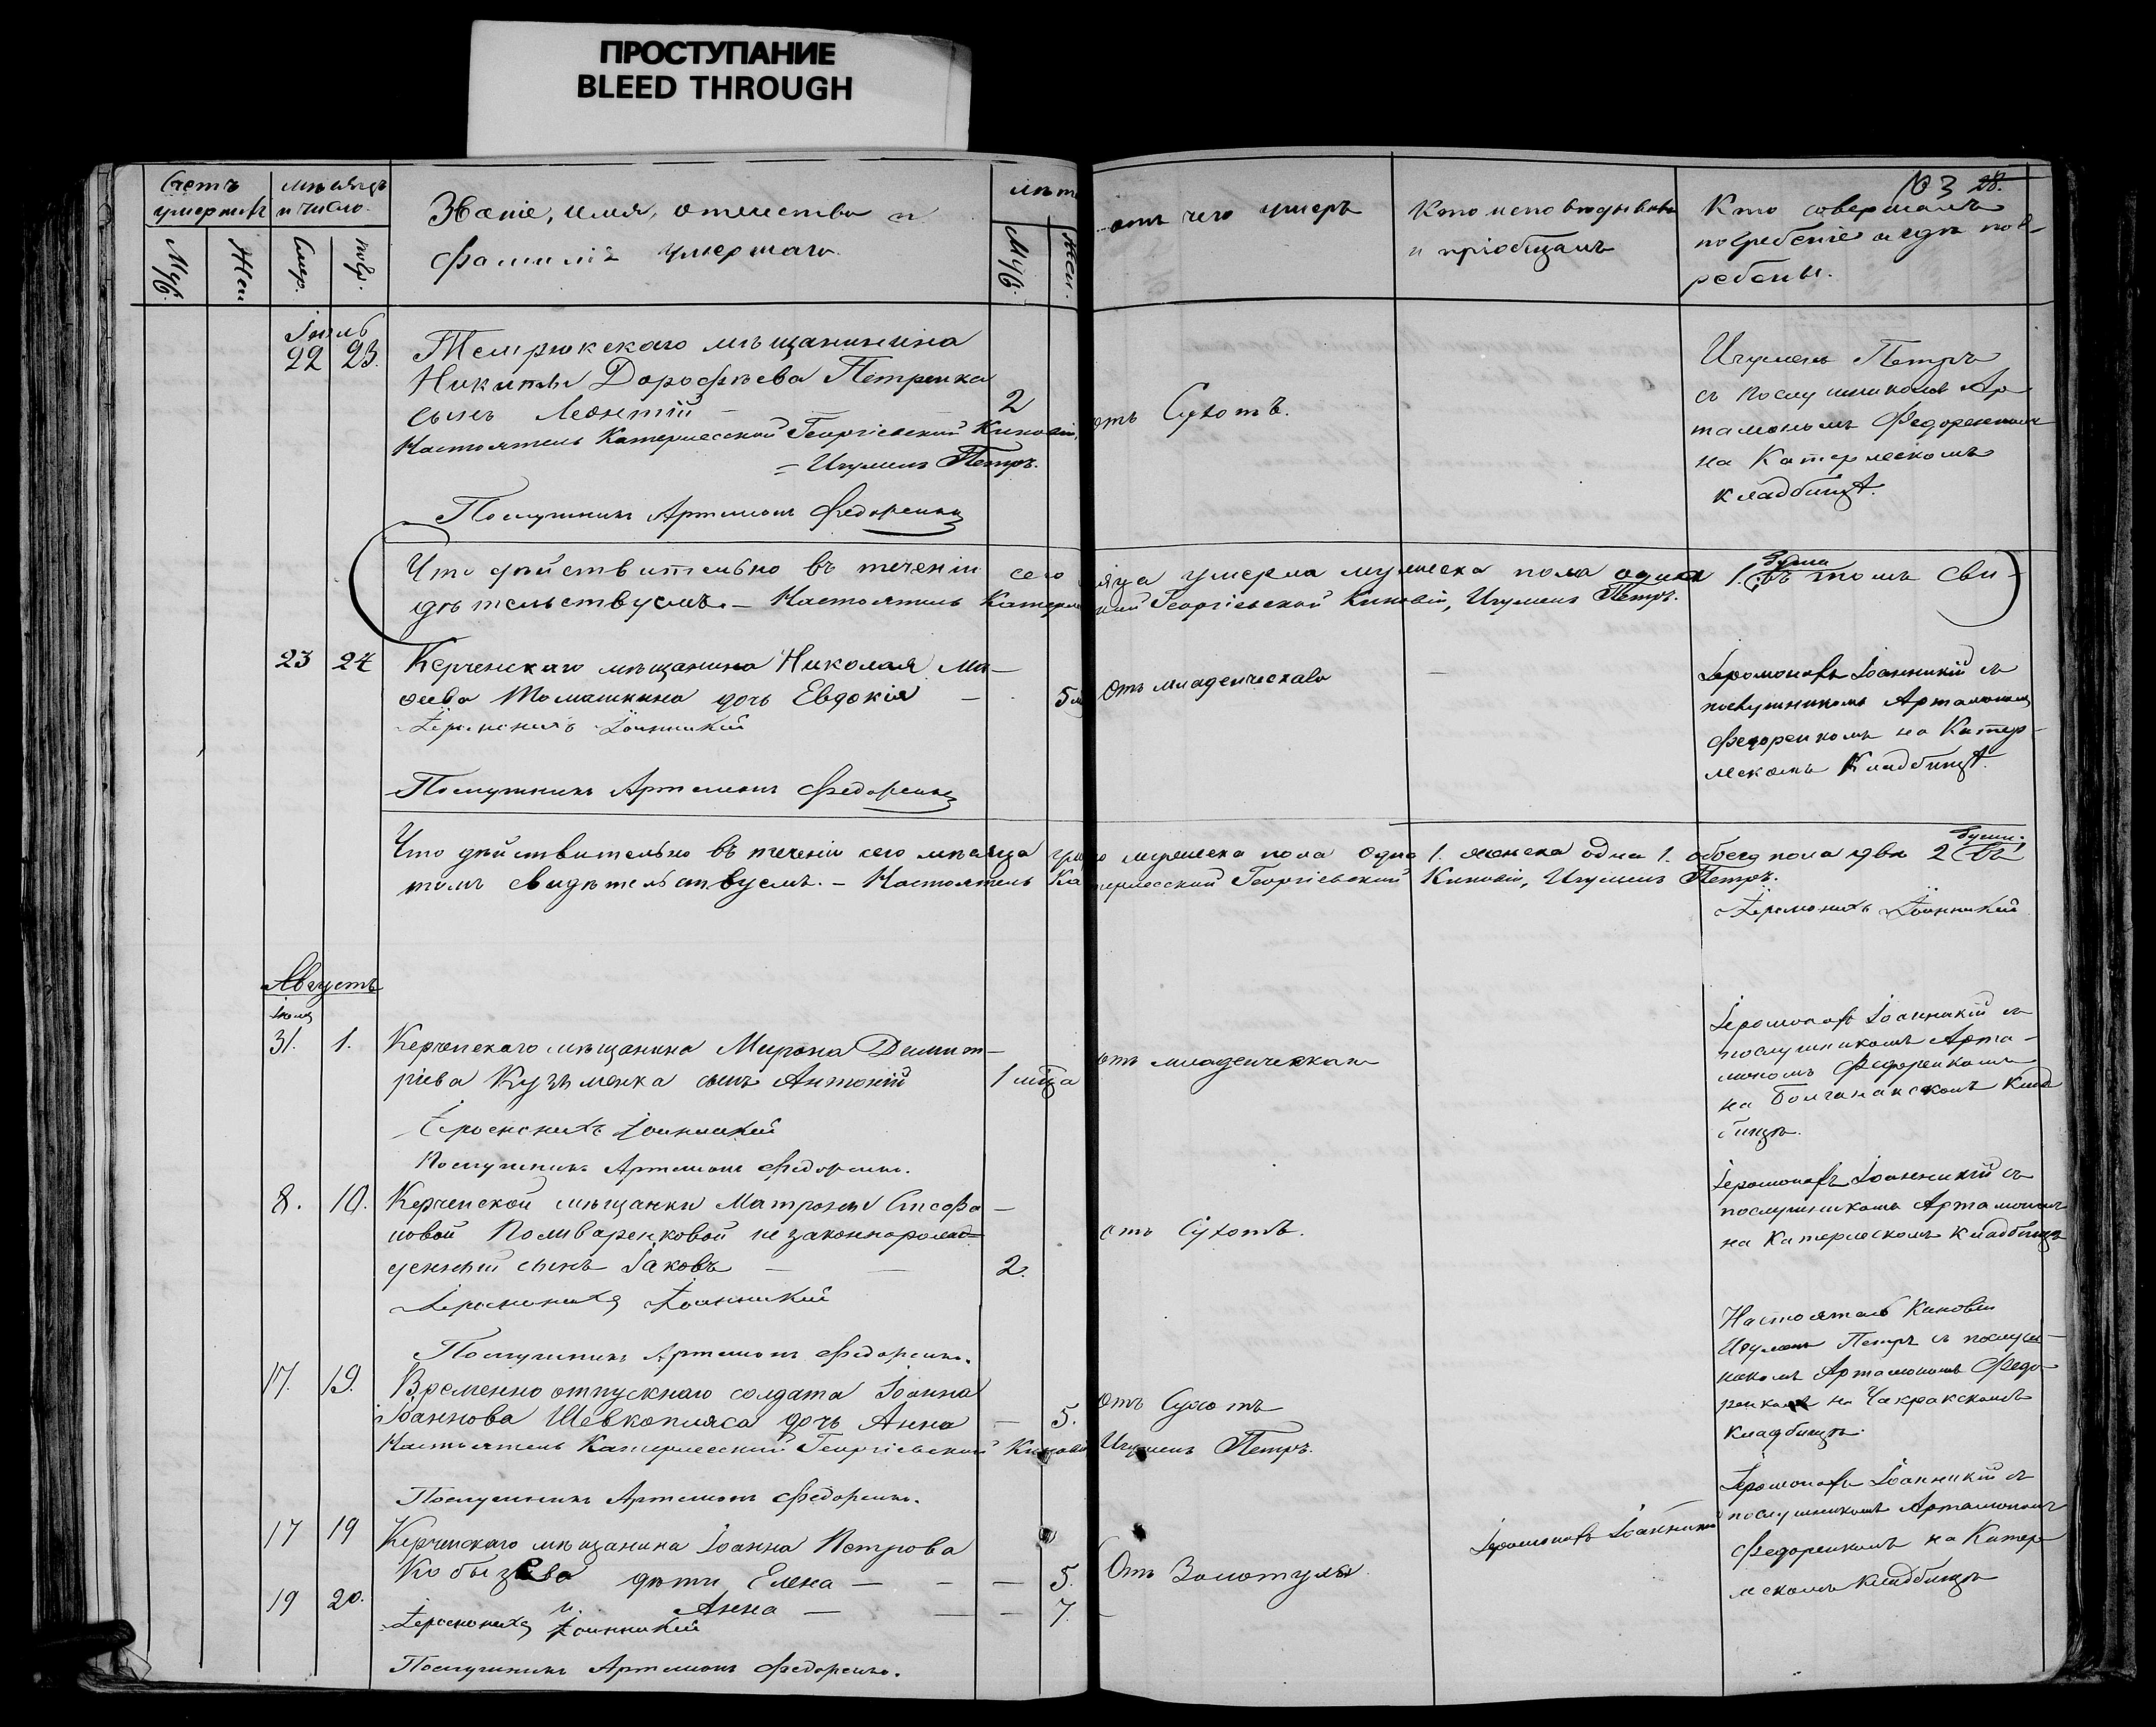 ПРОСТУПАНИЕ
BLEED THROUGH
103 28.
Счетъ умершихъ
мѣсяцъ и число.
Муж.
Жен
Смер.
погр.
Званіе, имя, отчество и
фамилія умершаго.
лѣта
Муж.
Жен.
отъ чего умеръ
Кто исповѣдывалъ
и пріобщалъ
Кто совершалъ
погребеніе и гдѣ пог-
ребены.
Іюль
22 23.
Темрюкскаго мѣщанина
Никиты Дорофѣева Петренка
сынъ Леонтій — 2
отъ Сухотъ.
Игуменъ Петръ
съ послушникомъ Ар
тамономъ Федоренкомъ
на Катерлескомъ
кладбищѣ.
Настоятель Катерлесской Георгіевской Киновіи,
= Игуменъ Петръ.
Послушникъ Артемонъ Федоренко
Что дѣйствительно въ теченіи сего мѣсяца умерло мужеска пола одинъ 1. въ томъ сви-
дѣтельствуемъ. — Настоятель Катерлесской Георгіевской Киновіи, Игуменъ Петръ.
23 24
Керченскаго мѣщанина Николая Ма-
сева Томашкина дочь Евдокія — 5 м
Отъ младенческаго
—
Іеромонахъ Іоанникій съ
послушникомъ Артамономъ
Федоренкомъ на Катер-
лескомъ Кладбищѣ.
Іеромонахъ Іоанникій
Послушникъ Артемонъ Федоренко
Что дѣйствительно въ теченіи сего мѣсяца умерло мужеска пола одно 1. женска одна 1. обоего пола двѣ 2 въ
томъ свидѣтельствуемъ. — Настоятель Катерлесской Георгіевской Киновіи, Игуменъ Петръ.
Іеромонахъ Іоанникій
Августъ
Іюля
31. 1.
Керченскаго мѣщанина Мирона Димит-
ріева Кузьменка сынъ Антоній 1 мѣца
отъ младенческаг
Іеромонахъ Іоанникій съ
послушникомъ Арта-
мономъ Федоренкомъ
на Болганакскомъ Клад
бищѣ.
Іеромонахъ Іоанникій
Послушникъ Артемонъ Федоренко.
8. 10.
Керченской мѣщанки Матроны Стефа-
новой Поливаренковой незаконнорож-
денный сынъ Іаковъ — — 2.
отъ Сухотъ.
Іеромонахъ Іоанникій съ
послушникомъ Артамономъ
на Катерлескомъ Кладбищѣ
Іеромонахъ Іоанникій
Послушникъ Артемонъ Федоренко.
17. 19.
Временно отпускнаго солдата Іоанна
Іоаннова Шевкопляса дочь Анна — 5.
Отъ Сухотъ
Настоятель Киновіи
Игуменъ Петръ съ послуш-
никомъ Артамономъ Федо-
ренкомъ на Чакракскомъ
Кладбищѣ.
Настоятель Катерлесской Георгіевской Киновіи Игуменъ Петръ.
Послушникъ Артемонъ Федоренко.
17 19
Керченскаго мѣщанина Іоанна Петрова
Кобызева дѣти Елена — — — 5.
19 20.
и Анна — — — 7.
Отъ Золотухи.
Іеромонахъ Іоанникій
Іеромонахъ Іоанникій съ
послушникомъ Артамономъ
Федоренкомъ на Катер
лескомъ Кладбищѣ
Іеромонахъ Іоанникій
Послушникъ Артемонъ Федоренко.